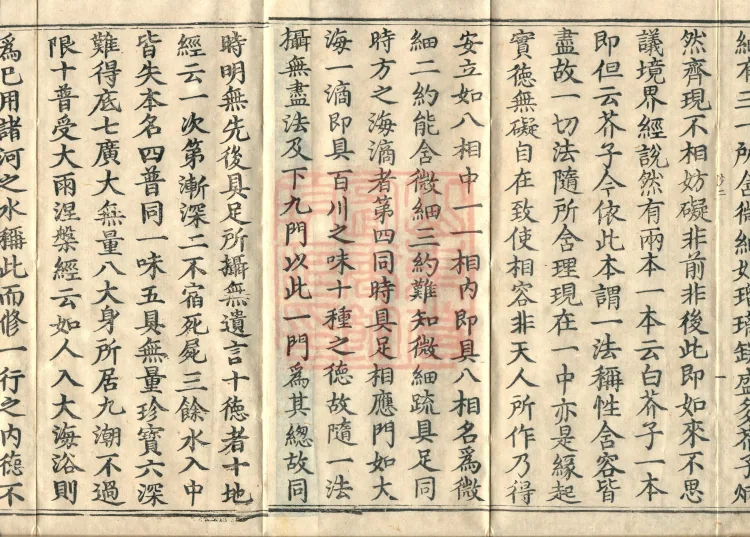 細有三一所含微細如瑠璃缾盛多芥子炳
然齊現不相妨礙非前非後此即如來不思
議境界經說然有兩本一本云白芥子一本
即但云芥子今依此本謂一法稱性含容皆
盡故一切法隨所含理現在一中亦是緣起
實德無礙自在致使相容非天人所作乃得
安立如八相中一一相內即具八相名為微
細二約能含微細三約難知微細疏具足同
時方之海滴者第四同時具足相應門如大
海一滴即具百川之味十種之德故隨一法
攝無盡法及下九門以此一門為其總故同
時明無先後具足所攝無遺言十德者十地
經云一次第漸深二不宿死屍三餘水入中
皆失本名四普同一味五具無量珍寶六深
難得底七廣大無量八大身所居九潮不過
限十普受大雨涅槃經云如人入大海浴則
為已用諸河之水稱此而修一行之內德不